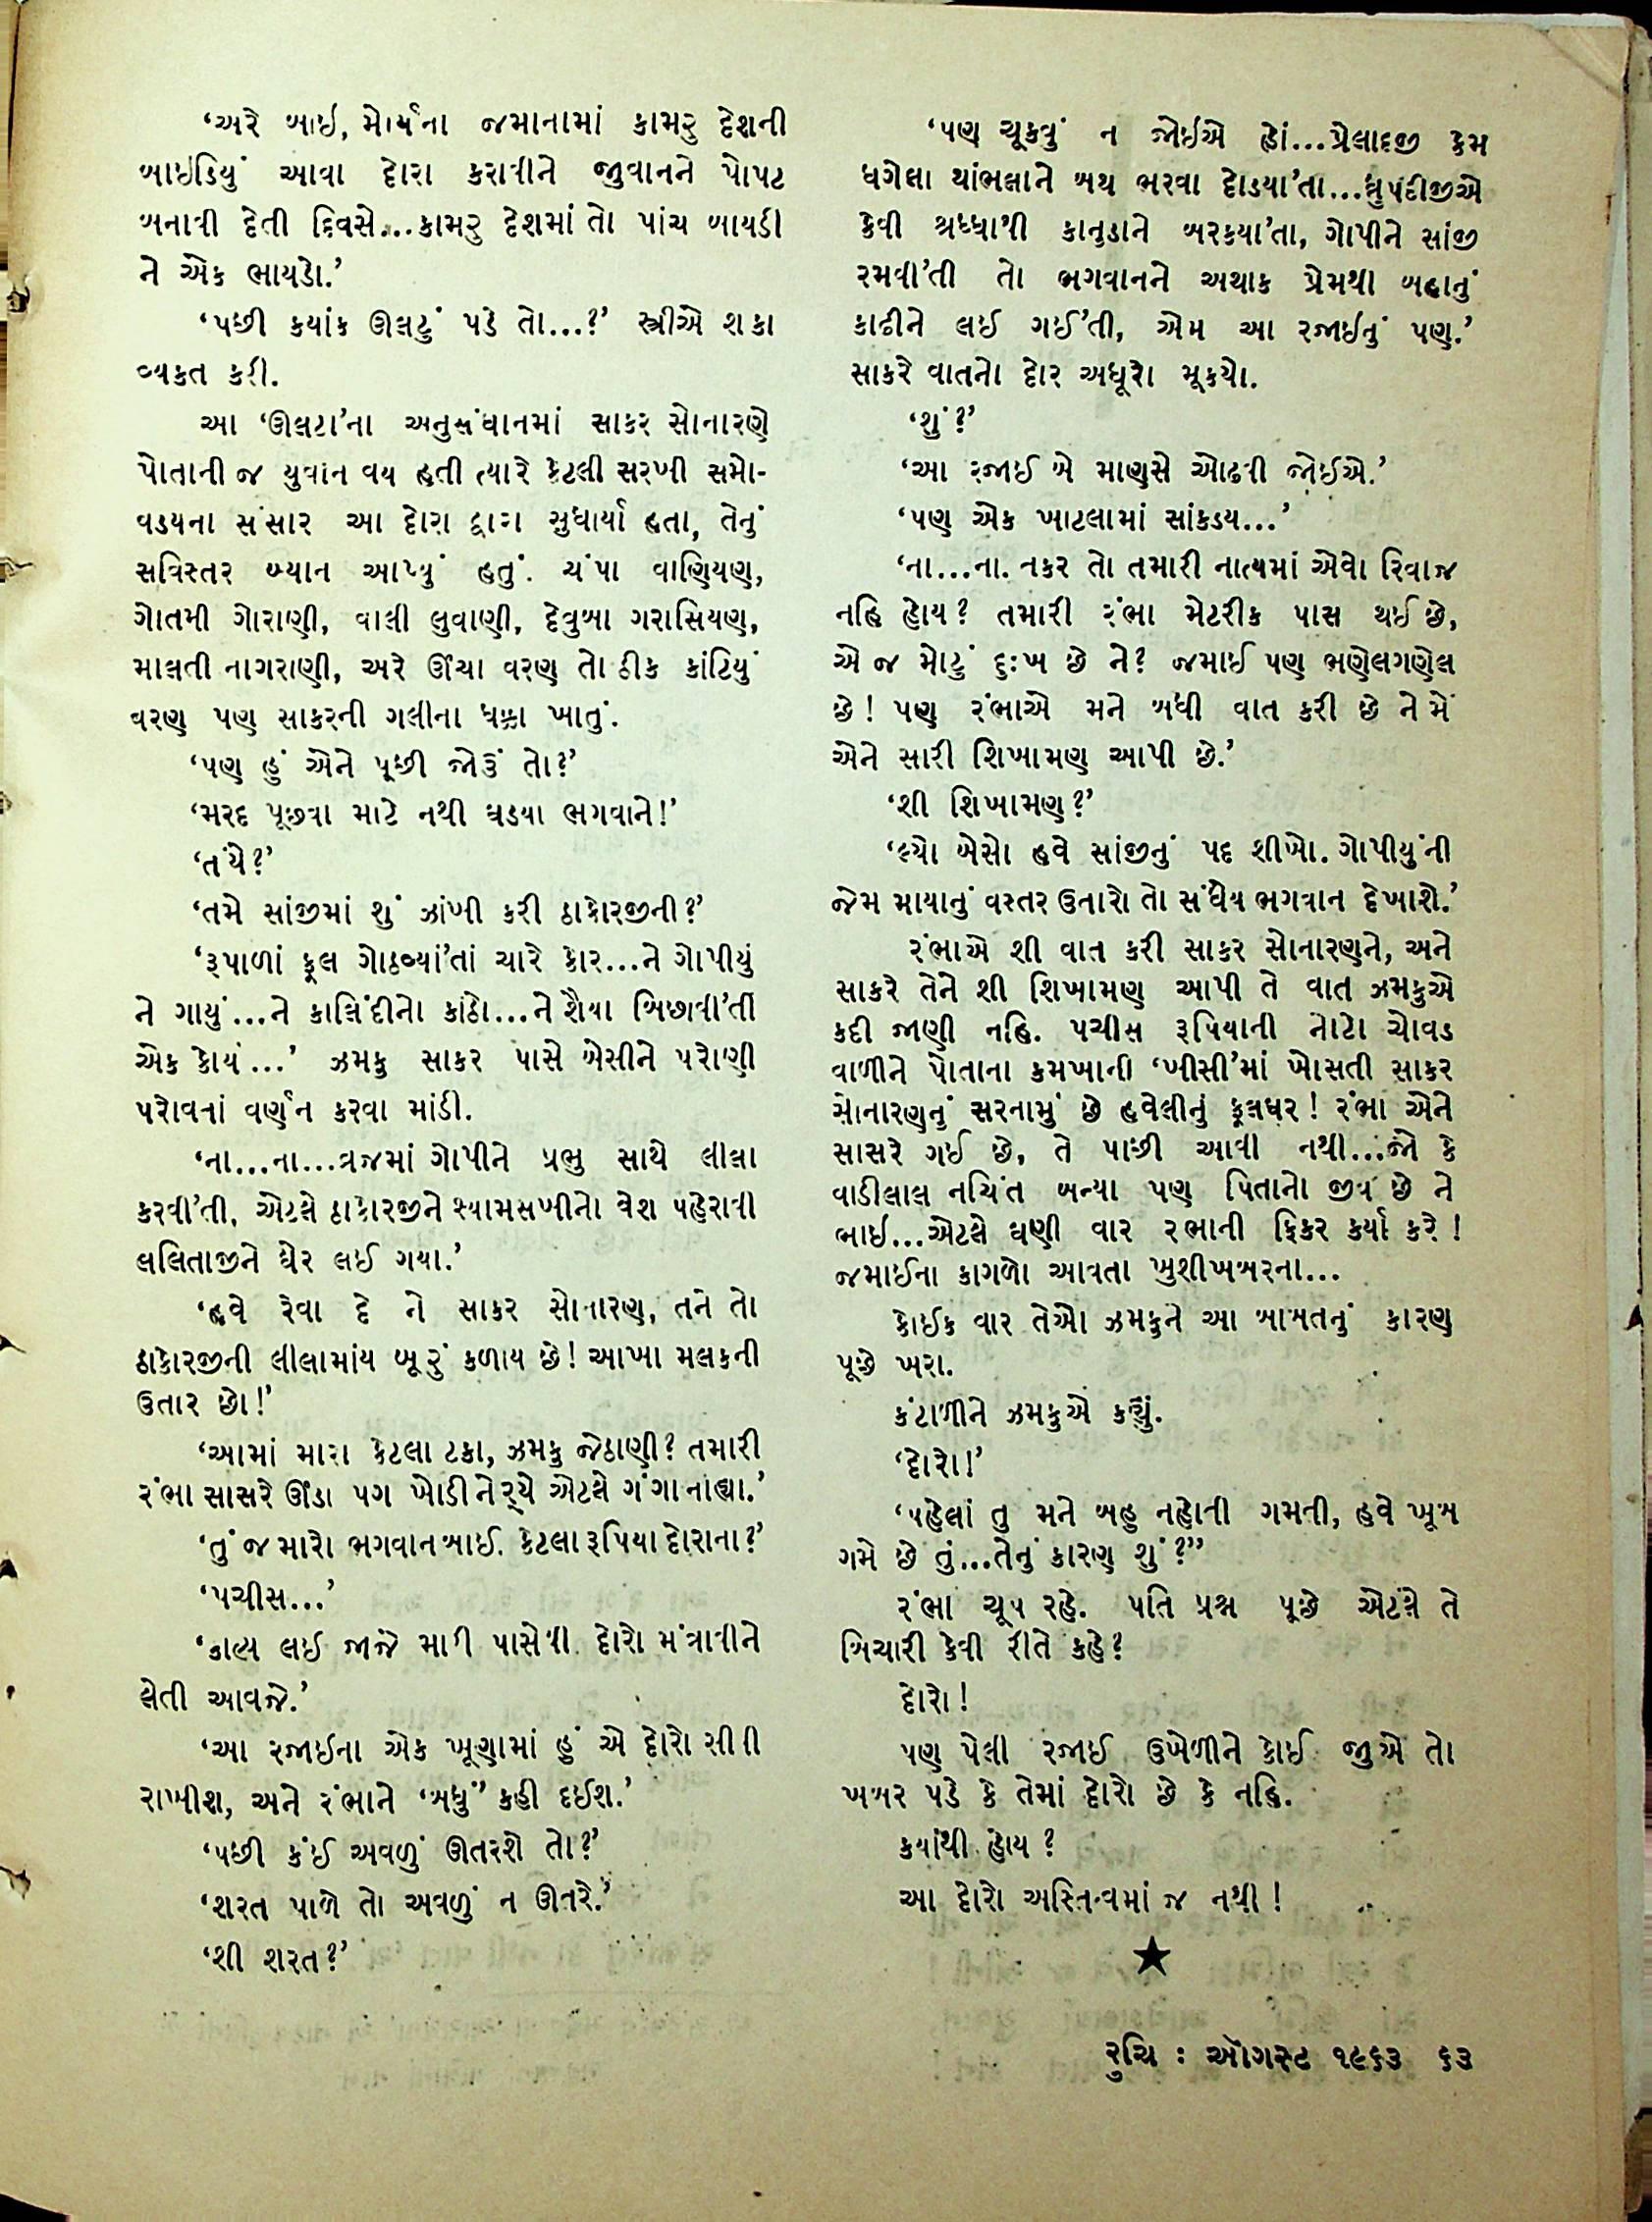 ‘અરે બાઈ, મોર્યના જમાનામાં કામરુ દેશની
બાઈડિયું આવા દોરા કરાવીને જુવાનને પોપટ
બનાવી દેતી દિવસે...કામરુ દેશમાં તો પાંચ બાયડી
ને એક ભાયડો.’
‘પછી કયાંક ઊલટું પડે તો...?’ સ્ત્રીએ શકા
વ્યકત કરી.
આ ‘ઊલટા’ના અનુસંધાનમાં સાકર સોનારણે
પોતાની જ યુવાન વય હતી ત્યારે કેટલી સરખી સમો-
વડયના સંસાર આ દોરા દ્વારા સુધાર્યા હતા, તેનું
સવિસ્તર બ્યાન આપ્યું હતું. ચંપા વાણિયણ,
ગોતમી ગોરાણી, વાલી લુવાણી, દેવુબા ગરાસિયણ,
માલતી નાગરાણી, અરે ઊંચા વરણ તો ઠીક કાંટિયું
વરણ પણ સાકરની ગલીના ધક્કા ખાતું.
‘પણ હું એને પૂછી જોઉં તો?’
‘મરદ પૂછવા માટે નથી ઘડયા ભગવાને!’
‘તંયે?’
‘તમે સાંજીમાં શું ઝાંખી કરી ઠાકોરજીની?’
‘રૂપાળાં ફૂલ ગોઠવ્યાં’તાં ચારે કોર...ને ગોપીયું
ને ગાયું...ને કાલિંદીનો કાંઠો...ને શૈયા બિછાવી’તી
એક કોર્ય...’ ઝમકુ સાકર પાસે બેસીને પરોણી
પરોવતાં વર્ણન કરવા માંડી.
‘ના...ના...વ્રજમાં ગોપીને પ્રભુ સાથે લીલા
કરવી’તી, એટલે ઠાકોરજીને શ્યામસખીનો વેશ પહેરાવી
લલિતાજીને ઘેર લઈ ગયા.’
‘હવે રેવા દે ને સાકર સોનારણ, તને તો
ઠાકોરજીની લીલામાંય બૂરું કળાય છે! આખા મલકની
ઉતાર છો!’
‘આમાં મારા કેટલા ટકા, ઝમકુ જેઠાણી? તમારી
રંભા સાસરે ઊંડા પગ ખોડીને ર્‌યે એટલે ગંગા નાહ્યા.’
‘તું જ મારો ભગવાન બાઈ. કેટલા રૂપિયા દોરાના?’
‘પચીસ...’
‘કાલ્ય લઈ જાજે મારી પાસેથી. દોરો મંત્રાવીને
લેતી આવજે.’
‘આ રજાઈના એક ખૂણામાં હું એ દોરો સીવી
રાખીશ, અને રંભાને ‘બધું” કહી દઈશ.’
‘પછી કંઈ અવળું ઊતરશે તો?’
‘શરત પાળે તો અવળું ન ઊતરે.’
‘શી શરત?’
‘પણ ચૂકવું ન જોઈએ હોં...પ્રેલાદજી કેમ
ધગેલા થાંભલાને બથ ભરવા દોડયા’તા...ધ્રુપદીજીએ
કેવી શ્રધ્ધાથી કાનુડાને બરકયા’તા, ગોપીને સાંજી
રમવી’તી તો ભગવાનને અથાક પ્રેમથી બહાનું
કાઢીને લઈ ગઈ’તી, એમ આ રજાઈનું પણ.’
સાકરે વાતનો દોર અધૂરો મૂકયો.
‘શું?’
‘આ રજાઈ બે માણસે ઓઢવી જોઈએ.’
‘પણ એક ખાટલામાં સાંકડય...’
‘ના...ના. નકર તો તમારી નાત્યમાં એવો રિવાજ
નહિ હોય? તમારી રંભા મેટરીક પાસ થઈ છે,
એ જ મોટું દુઃખ છે ને? જમાઈ પણ ભણેલગણેલ
છે! પણ રંભાએ મને બધી વાત કરી છે ને મેં
એને સારી શિખામણ આપી છે.’
‘શી શિખામણ?’
‘લ્યો બેસો હવે સાંજીનું પદ શીખો. ગોપીયુંની
જેમ માયાનું વસ્તર ઉતારો તો સંધૈય ભગવાન દેખાશે.’
રંભાએ શી વાત કરી સાકર સોનારણને, અને
સાકરે તેને શી શિખામણ આપી તે વાત ઝમકુએ
કદી જાણી નહિ. પચીસ રૂપિયાની નોટો ચોવડ
વાળીને પોતાના કમખાની ‘ખીસી’માં ખોસતી સાકર
સોનારણનું સરનામું છે હવેલીનું ફૂલઘર! રંભા એને
સાસરે ગઈ છે, તે પાછી આવી નથી...જો કે
વાડીલાલ નચિંત બન્યા પણ પિતાનો જીવ છે ને
ભાઈ...એટલે ઘણી વાર રભાની ફિકર કર્યા કરે!
જમાઈના કાગળો આવતા ખુશીખબરના...
કોઈક વાર તેઓ ઝમકુને આ બાબતનું કારણ
પૂછે ખરા.
કંટાળીને ઝમકુએ કહ્યું.
‘દોરો!’
‘પહેલાં તુ મને બહુ નહોતી ગમતી, હવે ખૂબ
ગમે છે તું...તેનું કારણ શું?”
રંભા ચૂપ રહે. પતિ પ્રશ્ન પૂછે એટલે તે
બિચારી કેવી રીતે કહે?
દોરો!
પણ પેલી રજાઈ ઉખેળીને કોઈ જુએ તો
ખબર પડે કે તેમાં દોરો છે કે નહિ.
કયાંથી હોય?
આ દોરો અસ્તિત્વમાં જ નથી!
રુચિ : ઑગસ્ટ ૧૯૬૩ ૬૩